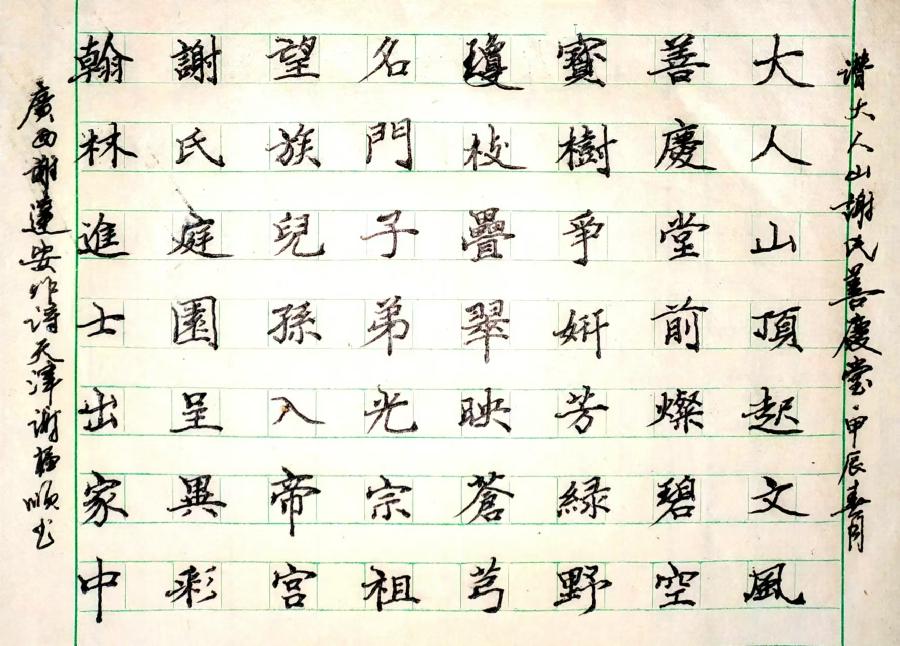 讚大人山謝氏善慶堂·甲辰春月
大人山頂起文風
善慶堂前燦碧空
寶樹爭妍芳綠野
瓊枝疊翠映蒼芎
名門子弟光宗祖
望族兒孫入帝宮
謝氏庭園呈異彩
翰林進士出家中
廣西謝蓬安作詩天津谢極順书